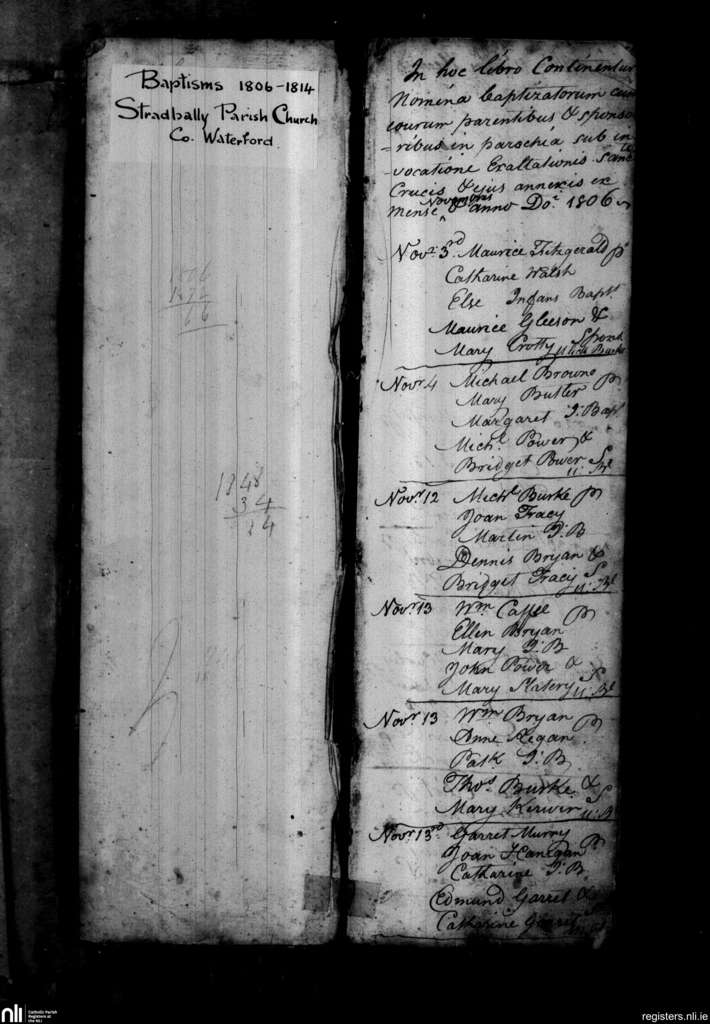 Baptisms 1806-1814
Stradbally Parish Church
Co. Waterford
1848
34
14
In hoc libro Continentur
Nomina baptizatorum cum
eourum parentibus & sponso
=ribus in parochia sub in
-vocatione Exaltationis Sanctæ
Crucis & ejus annexis ex
mense Novembris & anno Doi. 1806
Novr. 3rd. Maurice Fitzgerald P
Catharine Walsh
Else Infans Bapt.
Maurice Gleeson &
Mary Crotty Sponsr.
Novr. 4 Michael Browne P
Mary Butler
Margaret I: Bap
Michl. Power &
Bridget Power S
Novr. 12 Michl. Burke P
Joan Tracy
Martin I: B
Dennis Bryan &
Bridget Tracy S
Novr. 13 Wm. Caffee P
Ellen Bryan
Mary I: B
John Power &
Mary Slatery S
Novr 13 Wm. Bryan P
Anne Regan
Patk. I: B
Thos. Burke &
Mary Kerwin S
Novr. 13rd. Garret Murry
Joan Hanegan P
Catharine I: B
Edmund Garret &
Catharine
nli
Catholic Parish
Registers at
the NLI
registers.nli.ie